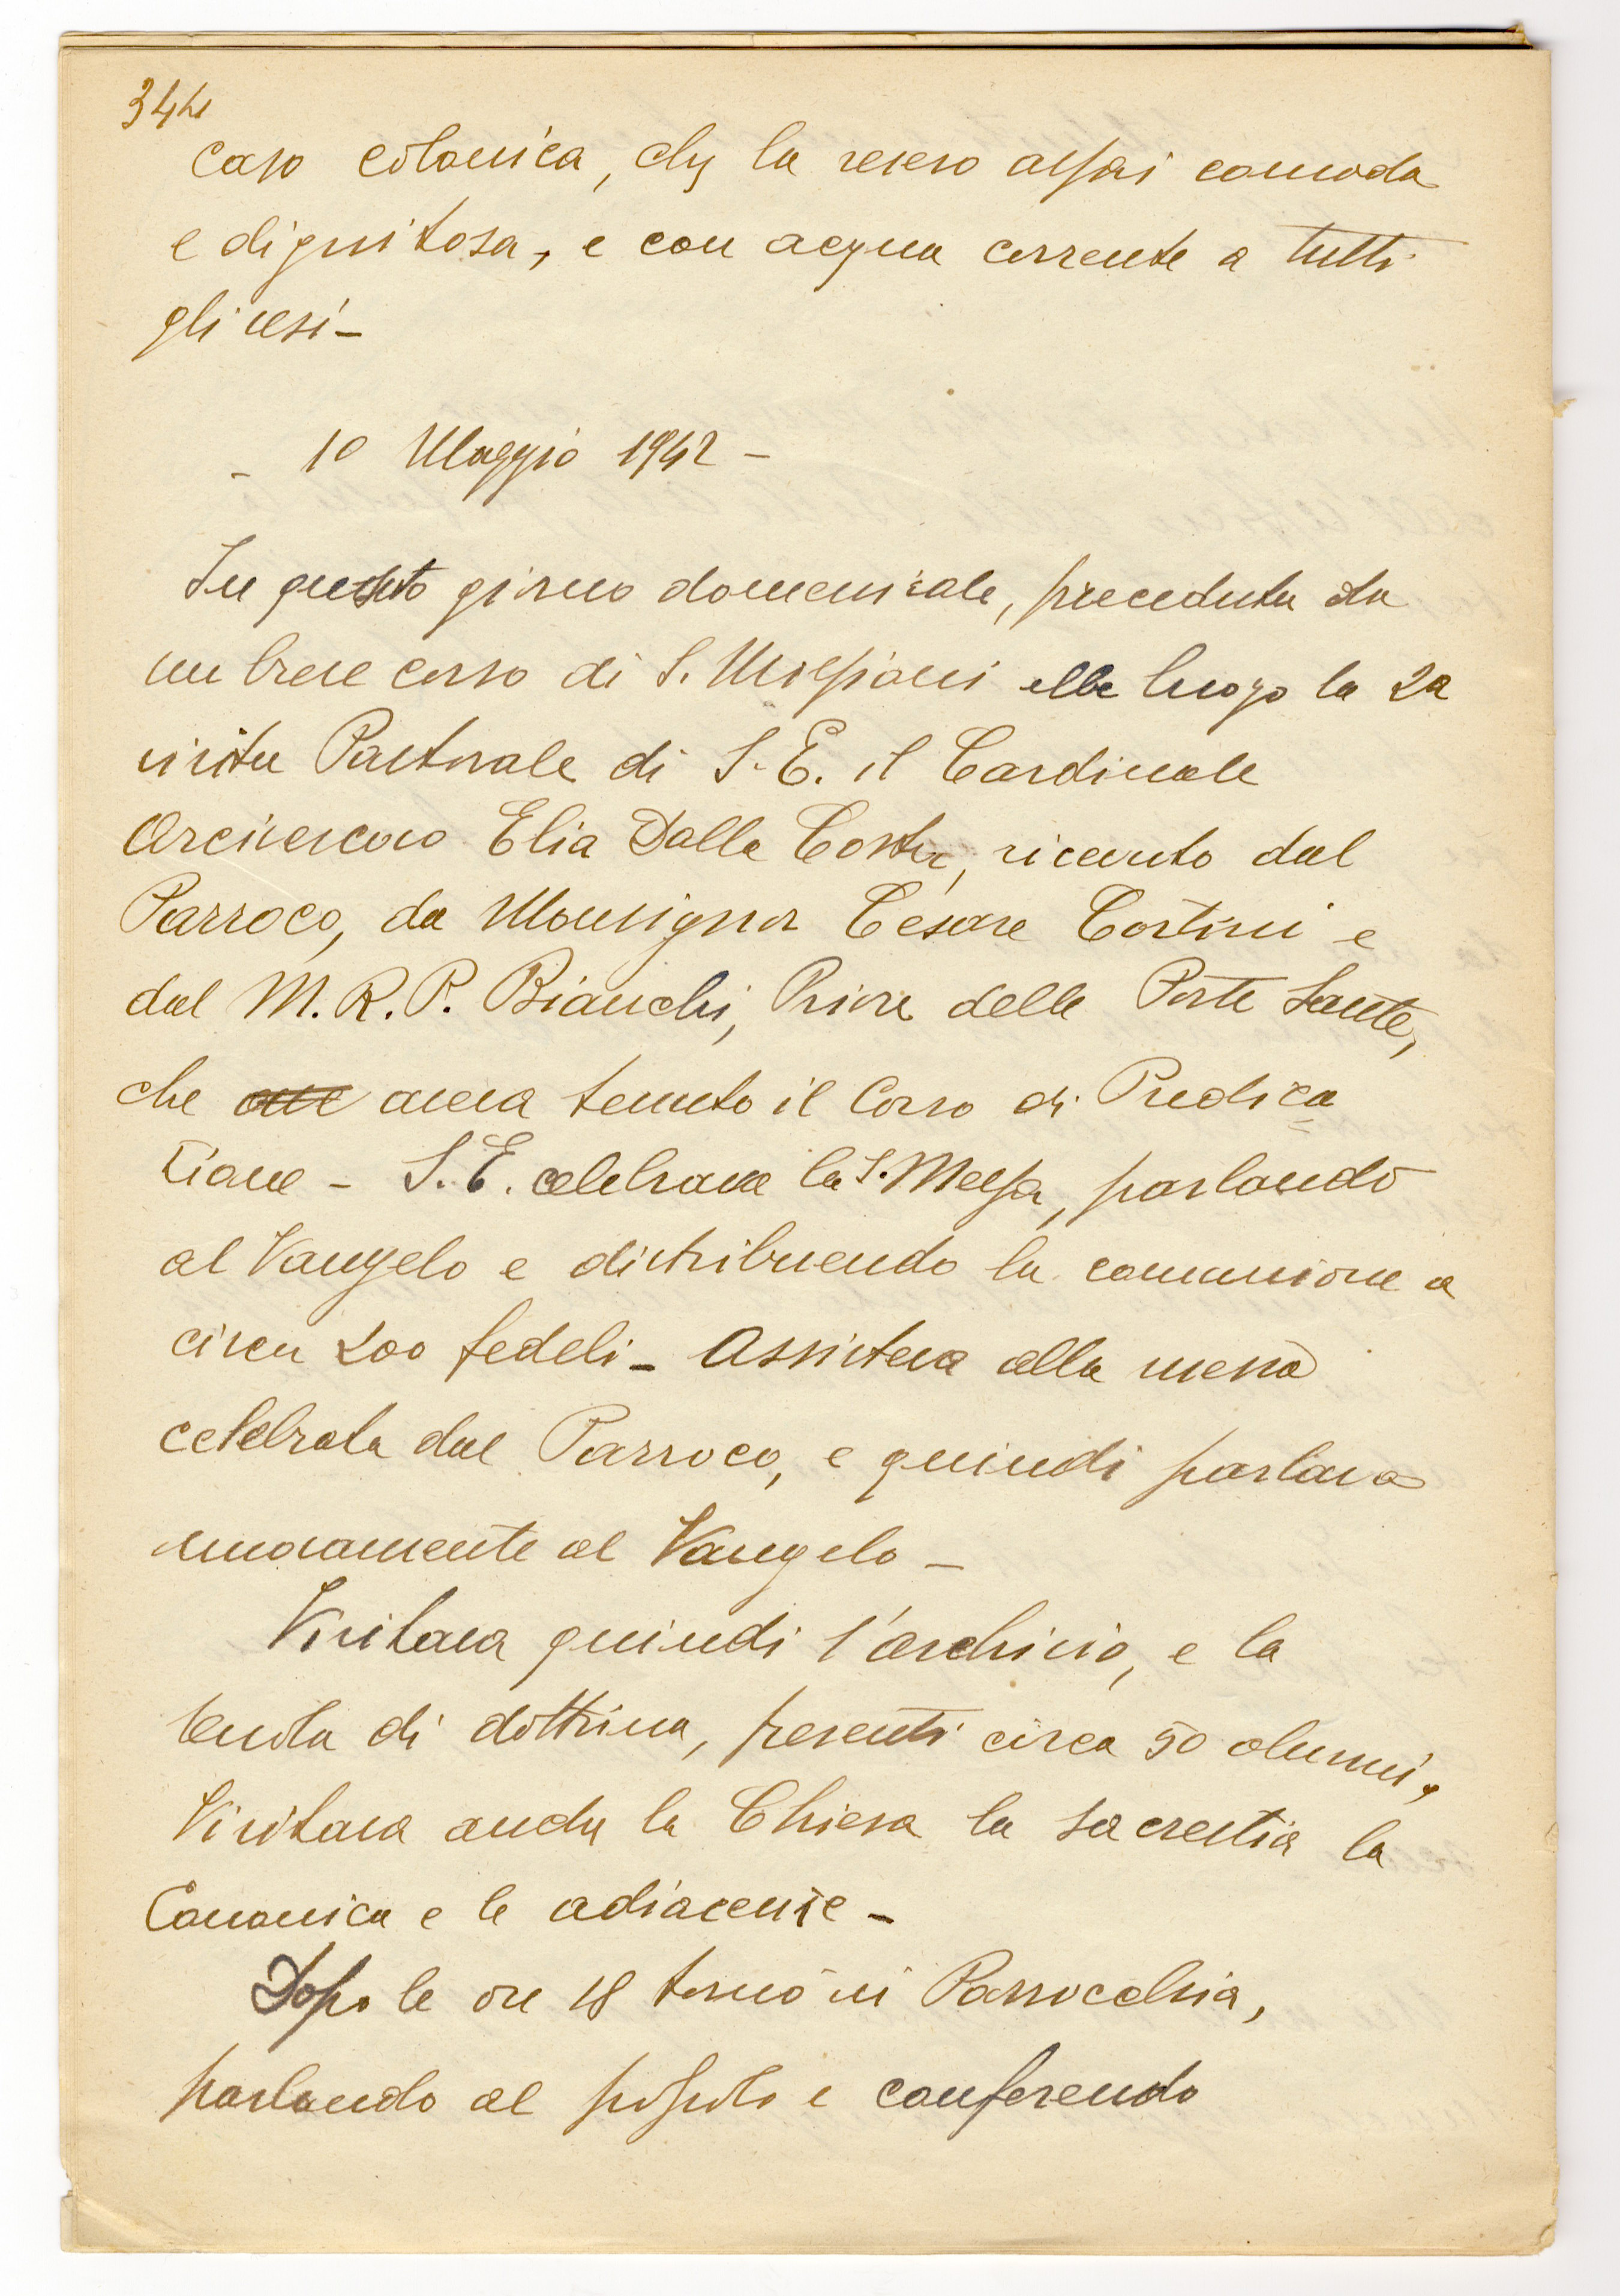 344
casa colonica, che la resero assai comoda
e dignitosa, e con acqua corrente a tutti
gli usi -
- 10 Maggio 1942 -
In questo giorno domenicale, preceduta da
un breve corso di S. Missioni ebbe luogo la 2a
visita Pastorale di S. E. il Cardinale
Arcivescovo Elia Dalla Costa, ricevuto dal
Parroco, da Monsignor Cesare Contini e
dal M. R. P. Bianchi, Priore delle Porte Sante,
che ave aveva tenuto il Corso di Predica
zione - S. E. celebrava la S. Messa, parlando
al Vangelo e distribuendo la comunione a
circa 200 fedeli - Assisteva alla messa
celebrata dal Parroco, e quindi parlava
nuovamente al Vangelo -
Visitava quindi l'archivio, e la
scuola di dottrina, presenti circa 50 alunni,
Visitava anche la Chiesa la sacrestia la
Canonica e le adiacenze -
Dopo le ore 18 tornò in Parrocchia,
parlando al popolo e conferendo